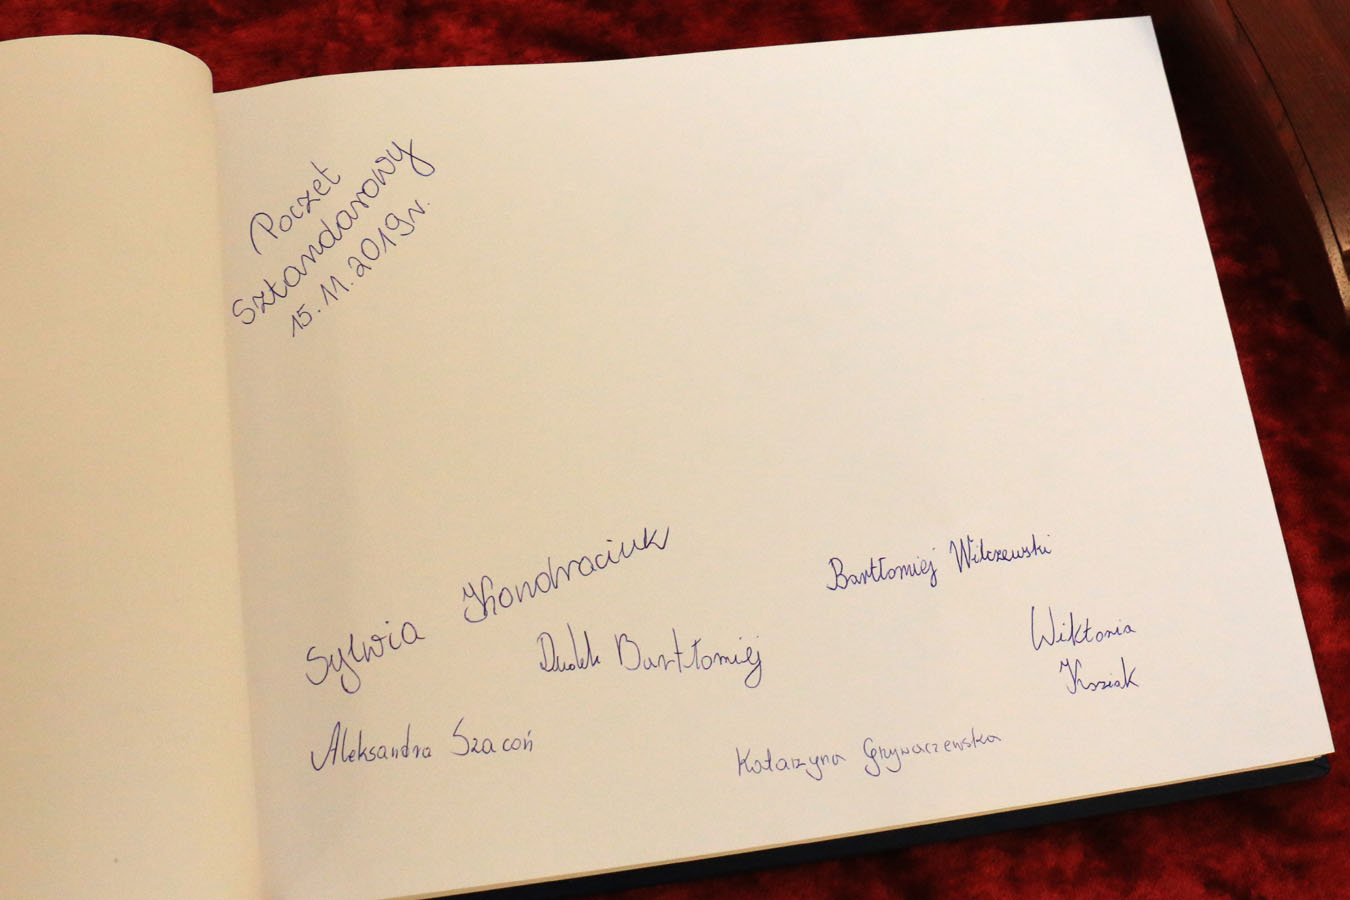 Poczet
Sztandarowy
15.11.2019r.
Sylwia Kondraciuk
Bartłomiej Wilczewski
Dudek Bartłomiej
Wiktoria
Aleksandra Szacoń
Katarzyna Grywaczewska